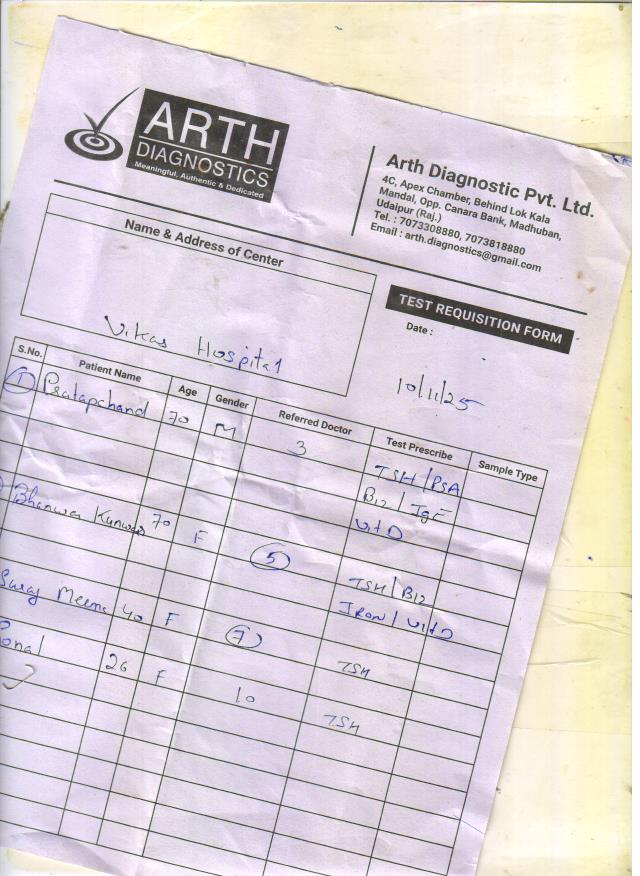 ARTH
DIAGNOSTICS
Meaningful, Authentic & Dedicated
Arth Diagnostic Pvt. Ltd.
4C, Apex Chamber, Behind Lok Kala
Mandal, Opp. Canara Bank, Madhuban,
Udaipur (Raj.)
Tel. : 7073308880, 7073818880
Email : arth.diagnostics@gmail.com
Name & Address of Center
Vikas Hospital
TEST REQUISITION FORM
Date :
10/11/25
S.No. Patient Name Age Gender Referred Doctor Test Prescribe Sample Type
1 Pratapchand 70 M 3 TSH/PSA
B12/IgE
Vit D
Bhanwar Kunwar 70 F 5 TSH/B12
IRON/Vit D
Suraj Meena 40 F 7 TSH
onal 26 F 10 TSH